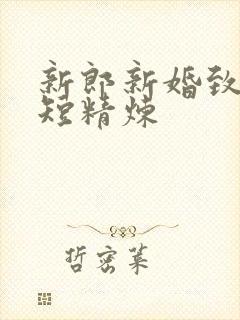 新郎新婚致
短精炼
哲密莱